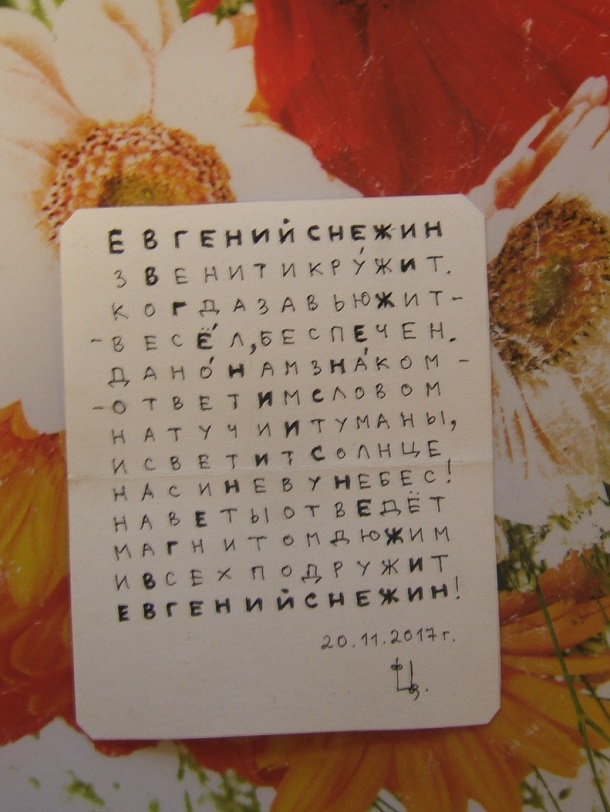 ЕВГЕНИЙСНЕЖИН
ЗВЕНИТИКРУ́ЖИТ.
КОГДАЗАВЬЮЖИТ-
-ВЕСЁЛ,БЕСПЕЧЕН.
ДАНО́НАМЗНА́КОМ-
-ОТВЕТИМСЛОВОМ
НАТУЧИИТУМАНЫ,
ИСВЕТИТСОЛНЦЕ
НАСИНЕВУНЕБЕС!
НАВЕТЫОТВЕДЁТ
МАГНИТОМДЮЖИМ
ИВСЕХПОДРУЖИТ
ЕВГЕНИЙСНЕЖИН!
20.11.2017г.